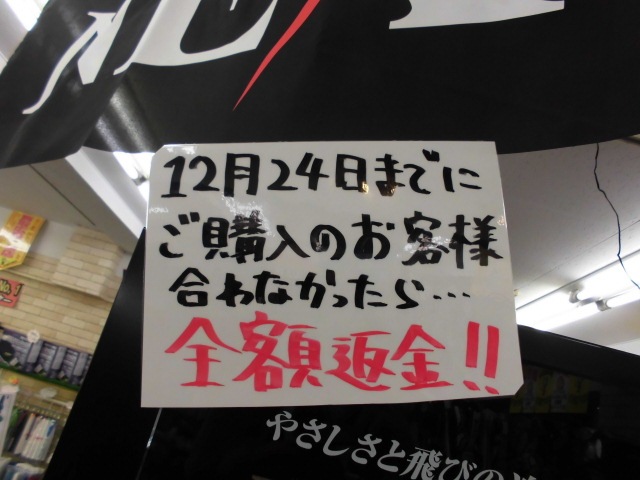 12月24日までに
ご購入のお客様
合わなかったら…
全額返金!!
やさしさと飛びの